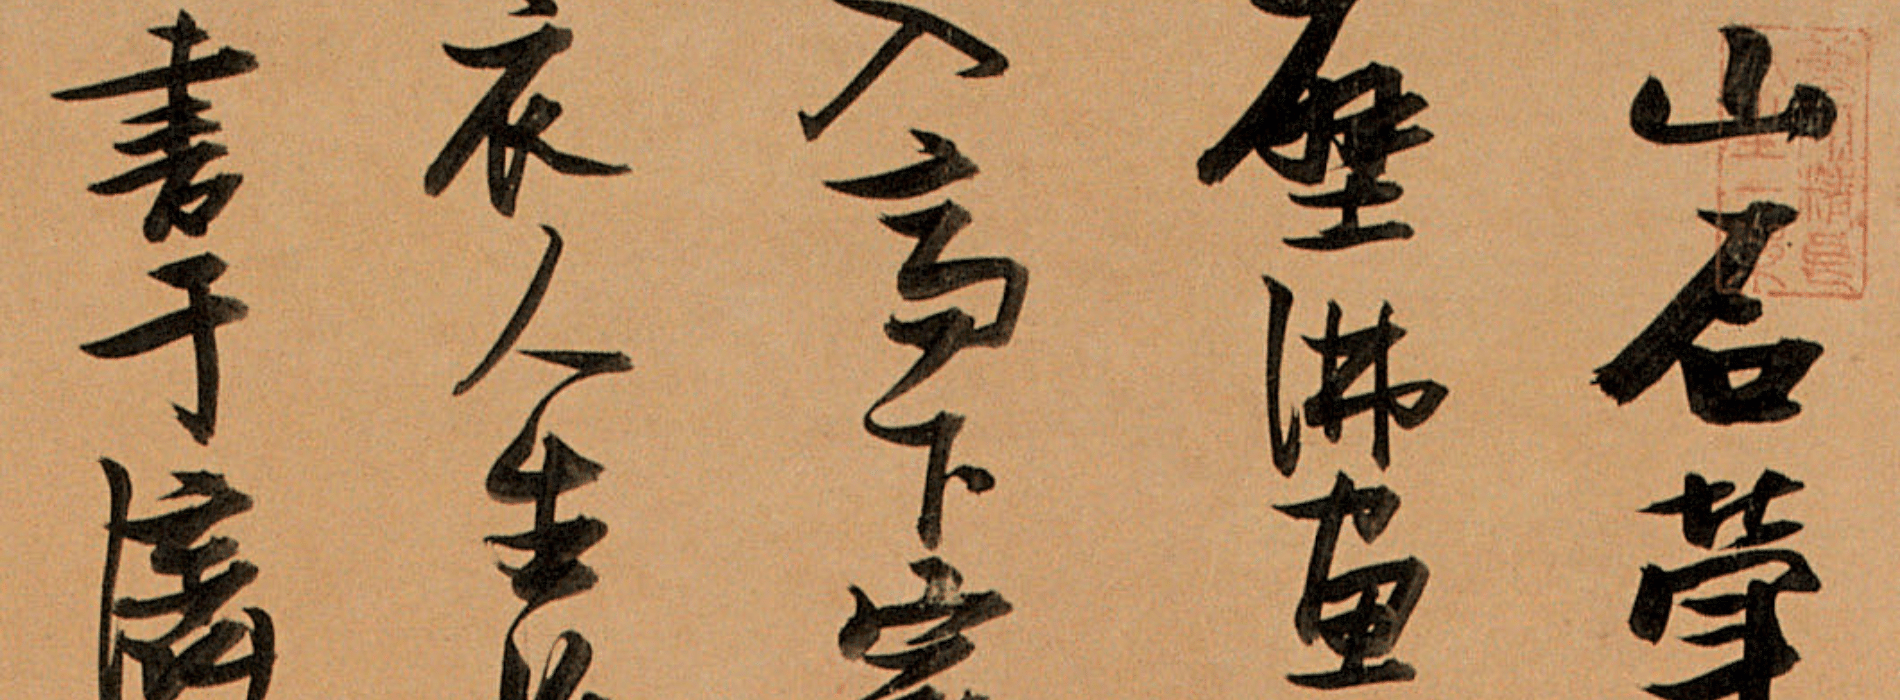 山石犖
壁佛畫
入高下窮
衣人生
書于濟